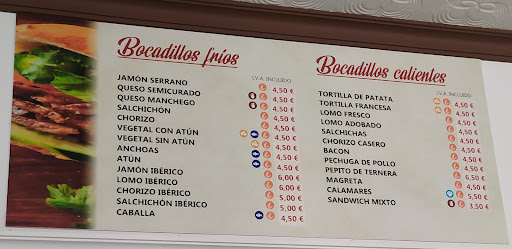 Bocadillos fríos
I.V.A. INCLUIDO
JAMÓN SERRANO 4,50 €
QUESO SEMICURADO 4,50 €
QUESO MANCHEGO 4,50 €
SALCHICHÓN 4,50 €
CHORIZO 4,50 €
VEGETAL CON ATÚN 4,50 €
VEGETAL SIN ATÚN 4,50 €
ANCHOAS 4,50 €
ATÚN 4,50 €
JAMÓN IBÉRICO 6,00 €
LOMO IBÉRICO 6,00 €
CHORIZO IBÉRICO 5,00 €
SALCHICHÓN IBÉRICO 5,00 €
CABALLA 4,50 €
Bocadillos calientes
I.V.A. INCLUIDO
TORTILLA DE PATATA 4,50 €
TORTILLA FRANCESA 4,50 €
LOMO FRESCO 4,50 €
LOMO ADOBADO 4,50 €
SALCHICHAS 4,50 €
CHORIZO CASERO 4,50 €
BACON 4,50 €
PECHUGA DE POLLO 4,50 €
PEPITO DE TERNERA 6,50 €
MAGRETA 4,50 €
CALAMARES 5,50 €
SANDWICH MIXTO 3,50 €